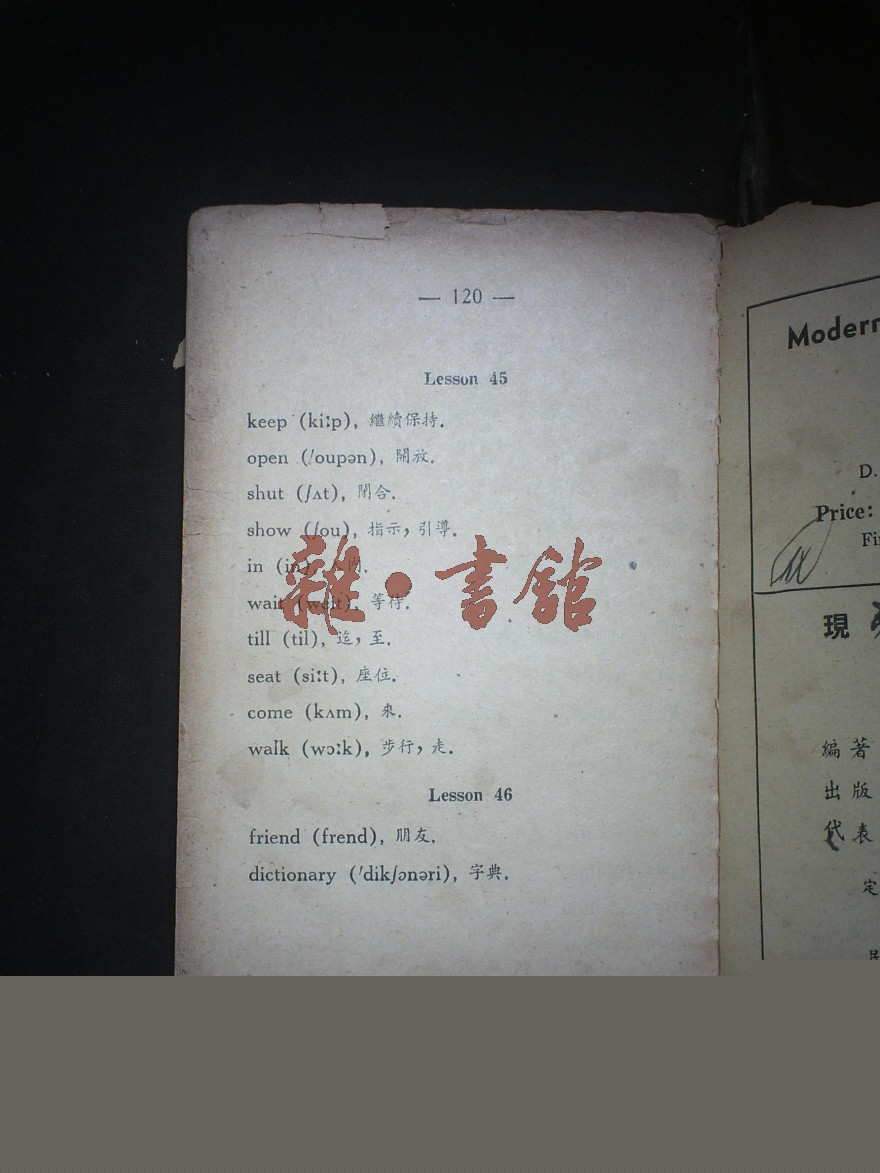 — 120 —
Lesson 45
keep (ki:p), 繼續保持.
open ('oupən), 開放.
shut (ʃʌt), 閉合.
show (ʃou), 指示，引導.
in (in), 內.
wait (weit), 等待.
till (til), 迄，至.
seat (si:t), 座位.
come (kʌm), 來.
walk (wɔ:k), 步行，走.
Lesson 46
friend (frend), 朋友.
dictionary ('dikʃənəri), 字典.
雜·書館
Modern
D.
Price:
Fi
現
編著
出版
代表
定